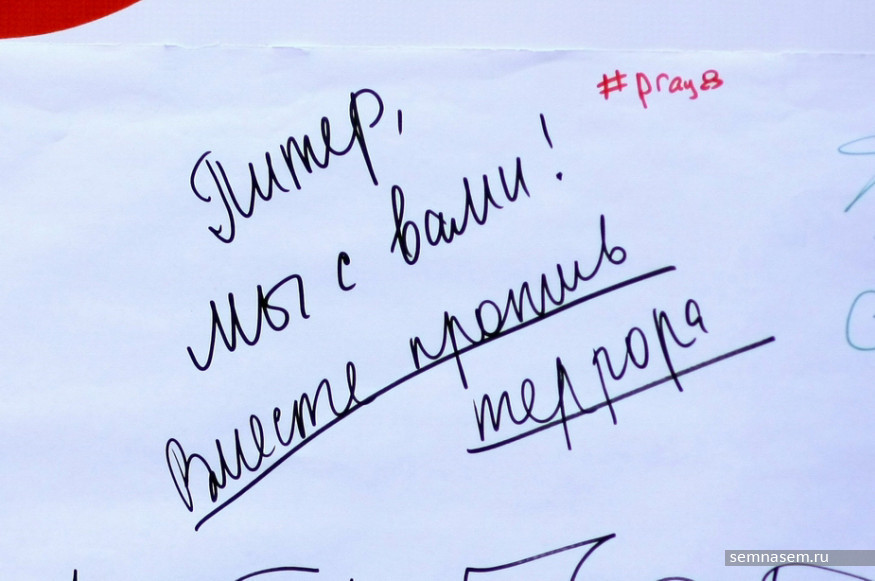 #pray8
Питер,
мы с вами!
Вместе против
террора
semnasem.ru